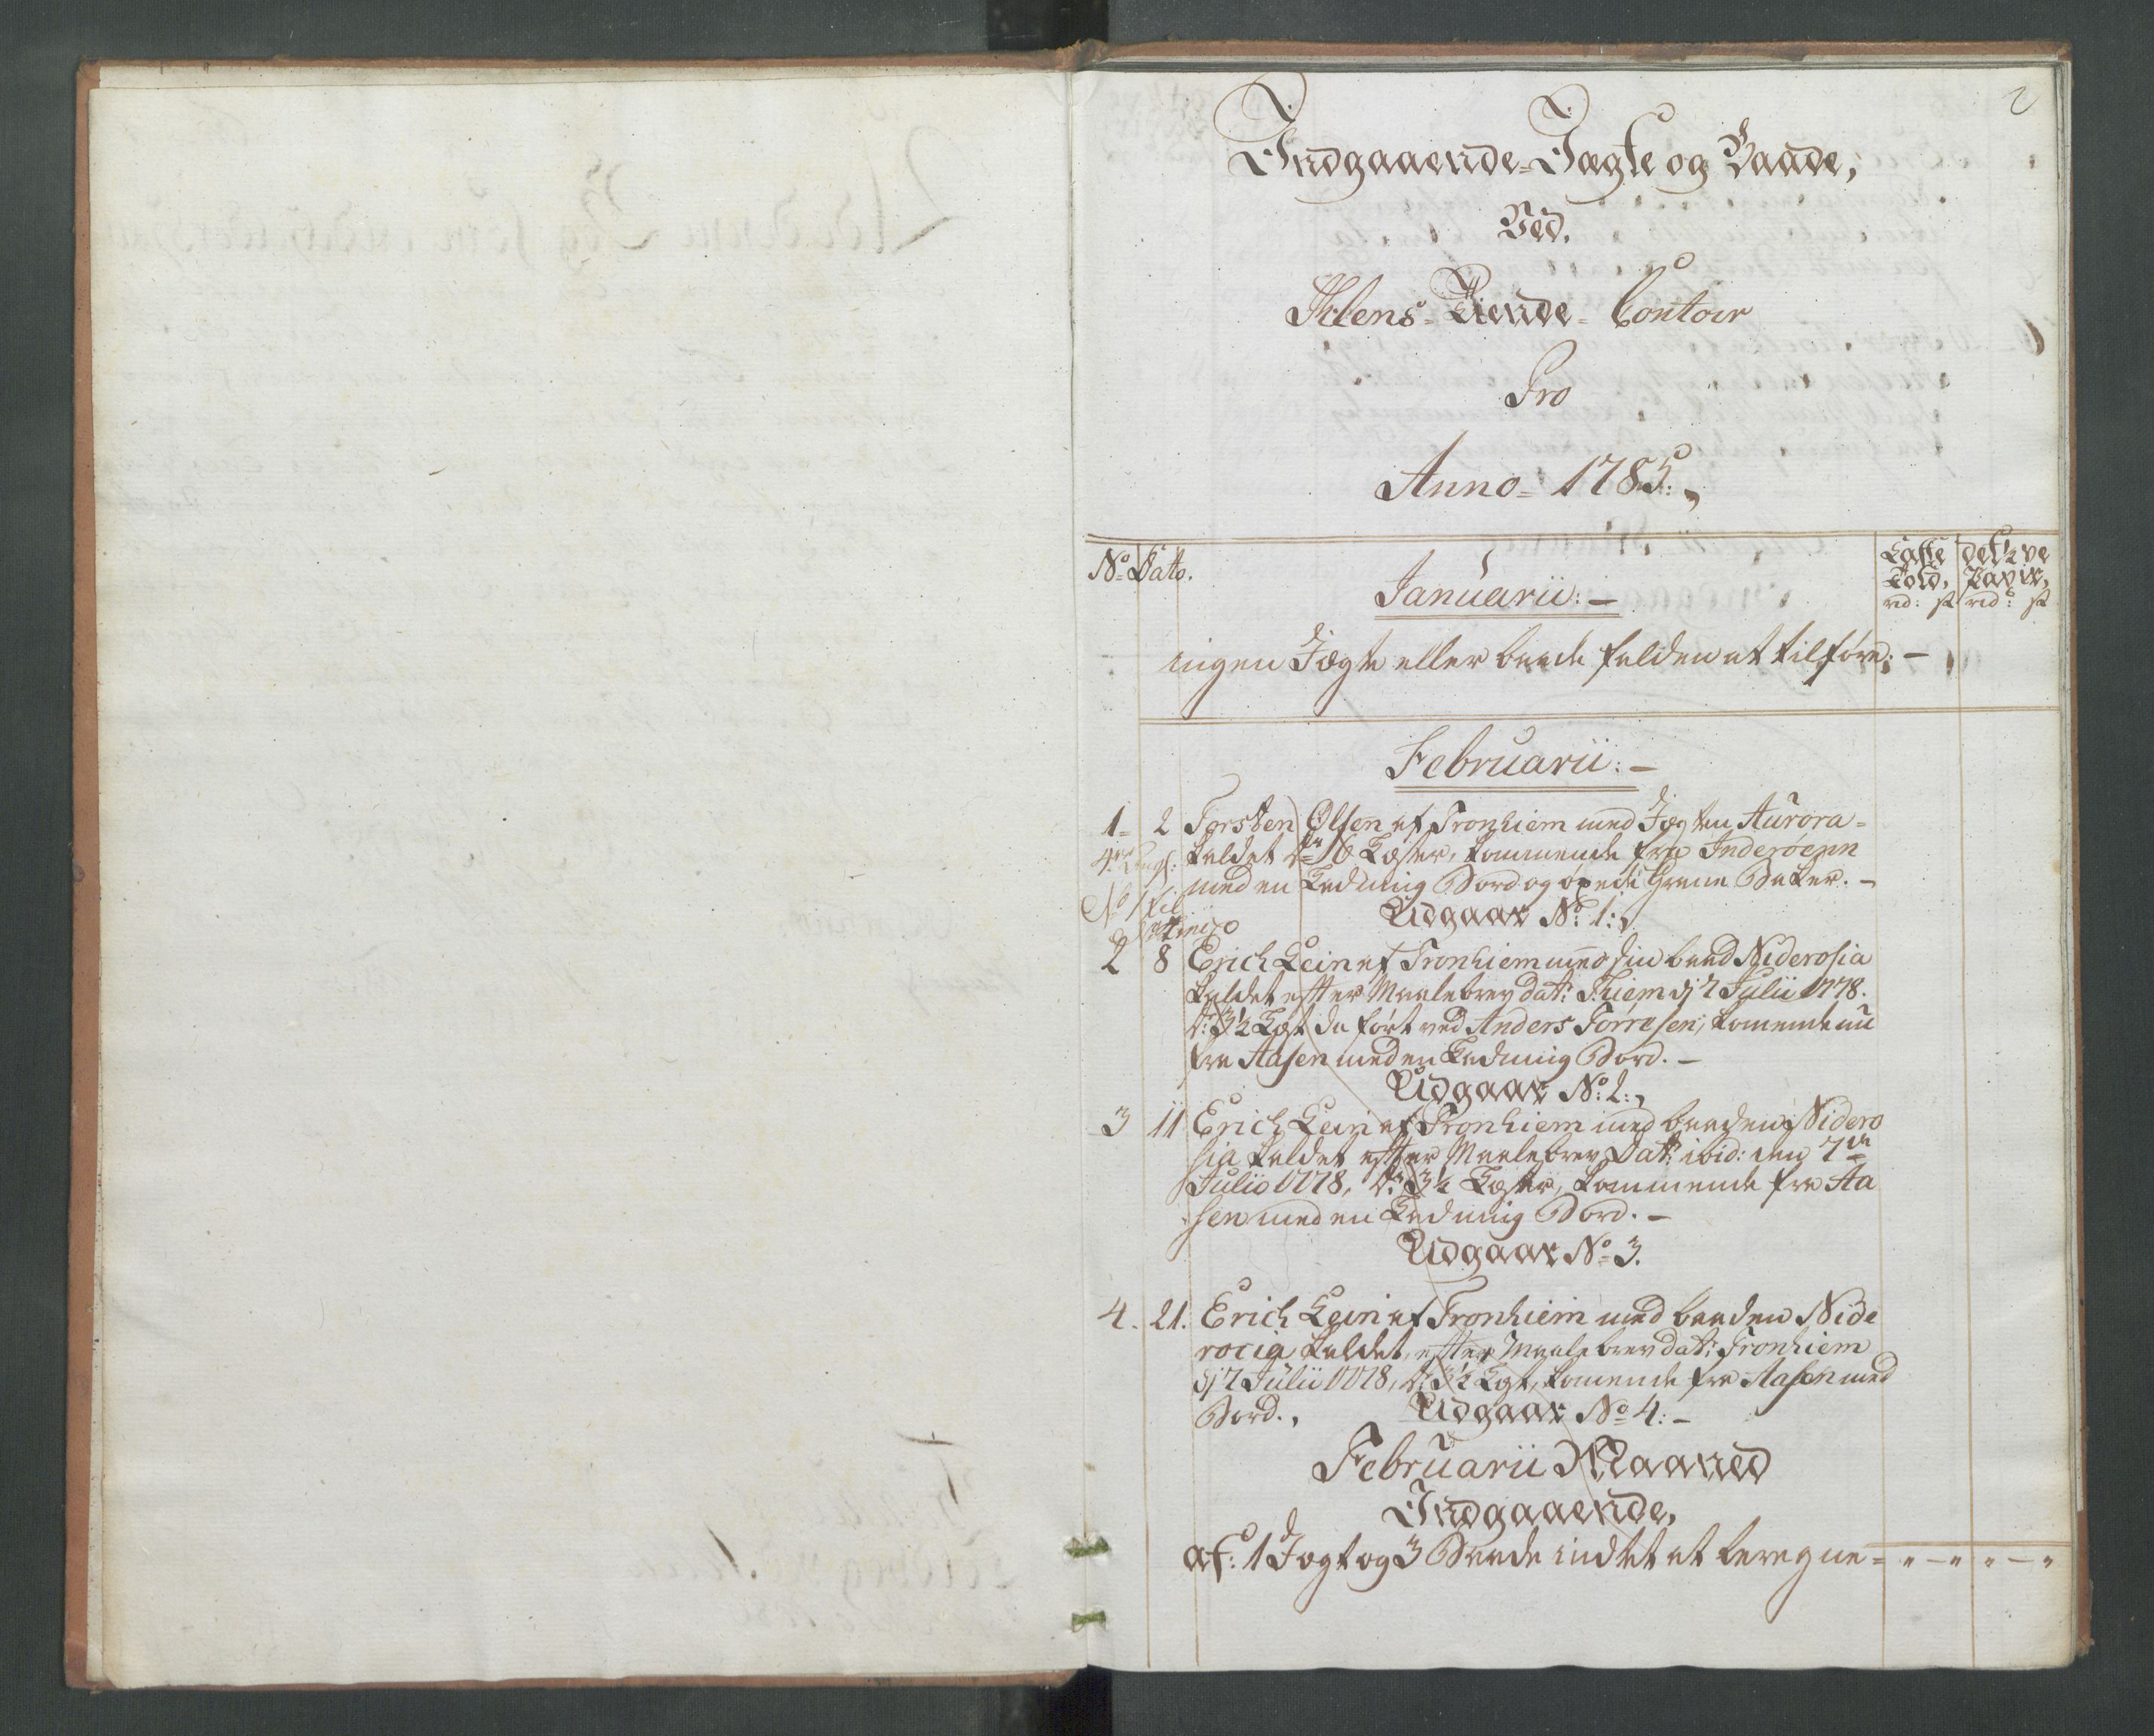 2
Indgaaende-Jagte og Baade,
Ved.
Ihlens-Tiende-Contoir
Pro
Anno-1785:,
No Dato.
Januarii:-
Laste Told, rd: s
def 1/2 ve
rd: s
ingen Jægte eller baade falden at tilføre:-
Februarii:-
1- 2 Torsten Olsen af Tronhiem med Jægten Aurora-
Kaldet dr: 16 Læster, kommende fra Inderoenn
med en Ladning Bord og Grane .-
Udgaar No: 1:,
2 8 Erich Lein af Tronhiem med sin baad Niderosia
Kaldet efter Maalebrev dat: Thiem dj 7 Julii 1778.
dr: 3½ Læst da ført ved Anders Törresen, komende nu
fra Aasen med en Ladning Bord.-
Udgaar No: 2:,
3 11 Erich Lein af Tronhiem med baaden Nidero
sia Kaldet efter Maalebrev Dat: ibid: den 7de
Julio 1778, dr: 3½ Læster, kommende fra Aa
sen med en Ladning Bord.-
Udgaar No 3.
4. 21. Erich Lein af Tronhiem med baaden Nide
rocia Kaldet, efter Maalebrev dat: Tronhiem
dj 7 Julii 1778, dr: 3½ Lgt, komende fra Aasen med
Bord., Udgaar No 4:-
Februarii Maaned
Indgaaende,
af: 1 Jægt og 3 Baade indtet at beregne = „ - „ „ - „